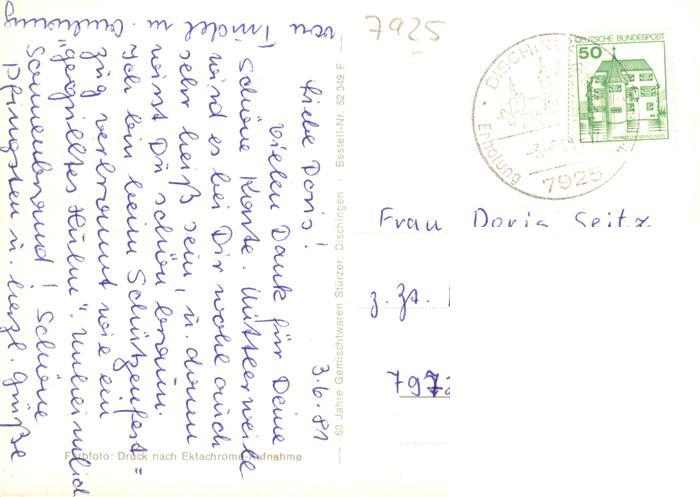 7925
DISCHIN
Erholung
7925
DEUTSCHE BUNDESPOST
50
3.6.81
Liebe Doris!
Vielen Dank für Deine
schöne Karte. Mittlerweile
wird es bei Dir wohl auch
sehr heiß sein, u. dann
wirst Du schön braun.
Ich bin beim Schützenfest=
zug verbrannt wie ein
"gegrilltes Huhn". Unheimlich
Sonnenbrand! Schöne
Pfingsten u. herzl. Grüße
von Trudel u.
Frau Doris Seitz
z. Zt.
797
60 Jahre Gemischtwaren Stürzer, Dischingen · Bestell-Nr. 52 349 F
Farbfoto: Druck nach Ektachrome-Aufnahme